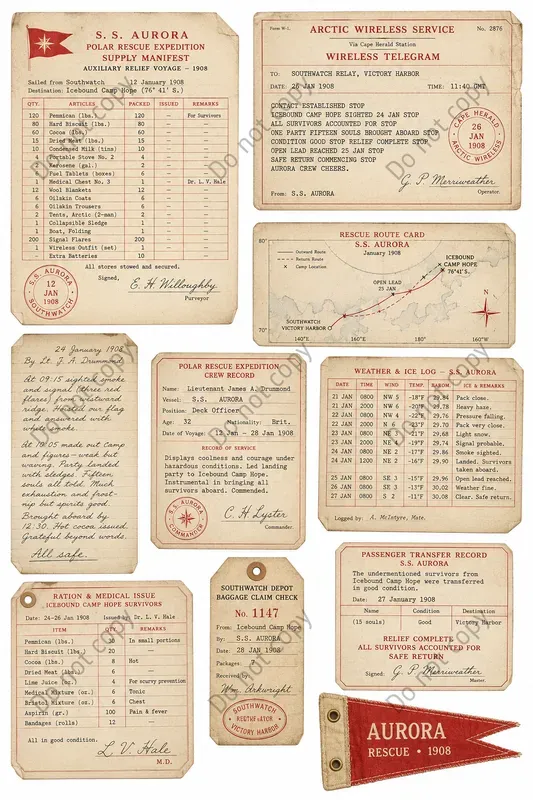 S. S. AURORA
POLAR RESCUE EXPEDITION
SUPPLY MANIFEST
AUXILIARY RELIEF VOYAGE – 1908
Sailed from Southwatch 12 January 1908
Destination: Icebound Camp Hope (76° 41' S.)
QTY. ARTICLES PACKED ISSUED REMARKS
120 Pemmican (lbs.) 120 — For Survivors
80 Hard Biscuit (lbs.) 80 — —
60 Cocoa (lbs.) 60 — —
15 Dried Meat (lbs.) 15 — —
10 Condensed Milk (tins) 10 — —
4 Portable Stove No. 2 4 — —
Kerosene (gal.)
6 Fuel Tablets (boxes) 6 — —
1 Medical Chest No. 3 1 — Dr. L. V. Hale
12 Wool Blankets 12 — —
6 Oilskin Coats 6 — —
6 Oilskin Trousers 6 — —
2 Tents, Arctic (2-man) 2 — —
1 Collapsible Sledge 1 — —
1 Boat, Folding 1 — —
200 Signal Flares 200 — —
1 Wireless Outfit (set) 1 — —
– Extra Batteries 10 — —
All stores stowed and secured.
Signed, E. H. Willoughby
Purveyor
S. S. AURORA
12
JAN
1908
SOUTHWATCH
Form W-1.
ARCTIC WIRELESS SERVICE
No. 2876
Via Cape Herald Station
WIRELESS TELEGRAM
TO: SOUTHWATCH RELAY, VICTORY HARBOR
DATE: 26 JAN 1908 TIME: 11:40 GMT
CONTACT ESTABLISHED STOP
ICEBOUND CAMP HOPE SIGHTED 24 JAN STOP
ALL SURVIVORS ACCOUNTED FOR STOP
ONE PARTY FIFTEEN SOULS BROUGHT ABOARD STOP
CONDITION GOOD STOP RELIEF COMPLETE STOP
OPEN LEAD REACHED 25 JAN STOP
SAFE RETURN COMMENCING STOP
AURORA CREW CHEERS.
CAPE HERALD
26
JAN
1908
ARCTIC WIRELESS
G. P. Merriweather
From: S.S. AURORA Operator.
RESCUE ROUTE CARD
S.S. AURORA
January 1908
80°
Outward Route
Return Route
Camp Location
ICEBOUND
CAMP HOPE
76°41'S.
OPEN LEAD
25 JAN
SOUTHWATCH
VICTORY HARBOR
N
70°
140°E 160°E 180° 160°W
24 January 1908
By Lt. J. A. Drummond
At 09:15 sighted smoke
and signal (three red
flares) from westward
ridge. Hoisted our flag
and answered with
white smoke.
At 10:05 made out Camp
and figures—weak but
waving. Party landed
with sledges. Fifteen
souls all told. Much
exhaustion and frost-
nip but spirits good.
Brought aboard by
12:30. Hot cocoa issued.
Grateful beyond words.
All safe.
POLAR RESCUE EXPEDITION
CREW RECORD
Name: Lieutenant James A. Drummond
Vessel: S.S. AURORA
Position: Deck Officer
Age: 32 Nationality: Brit.
Date of Voyage: 12 Jan – 28 Jan 1908
RECORD OF SERVICE
Displays coolness and courage under
hazardous conditions. Led landing
party to Icebound Camp Hope.
Instrumental in bringing all
survivors aboard. Commended.
S.S. AURORA
COMMANDER
C. H. Lyster
Commander.
WEATHER & ICE LOG – S.S. AURORA
DATE TIME WIND TEMP. BAROM. ICE & REMARKS
21 JAN 0800 NW 5 -18°F 29.84 Pack close.
21 JAN 2000 NW 6 -20°F 29.78 Heavy haze.
22 JAN 0800 NW 6 29.76 Pressure falling.
22 JAN 2000 N 6 -23°F 29.70 Pack very close.
23 JAN 0800 NE 5 -21°F 29.68 Light snow.
23 JAN 2000 NE 4 -19°F 29.74 Signal probable.
24 JAN 0800 NE 2 -17°F 29.86 Smoke sighted.
24 JAN 1200 NE 2 -16°F 29.90 Landed. Survivors
taken aboard.
25 JAN 0800 SE 3 -15°F 29.96 Open lead reached.
26 JAN 0800 SE 3 -13°F 30.02 Weather fine.
27 JAN 0800 S 2 -11°F 30.08 Clear. Safe return.
Logged by: A. McIntyre, Mate.
RATION & MEDICAL ISSUE
ICEBOUND CAMP HOPE SURVIVORS
Date: 24-26 Jan 1908 Issued by: Dr. L. V. Hale
ITEM QTY. REMARKS
Pemmican (lbs.) 30 In small portions
Hard Biscuit (lbs.) 20 —
Cocoa (lbs.) 8 Hot
Dried Meat (lbs.) 6 —
Lime Juice (oz.) 4 For scurvy prevention
Medical Mixture (oz.) 6 Tonic
Bristol Mixture (oz.) 6 Chest
Aspirin (gr.) 100 Pain & fever
Bandages (rolls) 12 —
All in good condition.
L. V. Hale
M.D.
SOUTHWATCH DEPOT
BAGGAGE CLAIM CHECK
No. 1147
From: Icebound Camp Hope
By: S.S. AURORA
Date: 28 JAN 1908
Packages:
Received by:
Wm. Arkwright
SOUTHWATCH
VICTORY HARBOR
PASSENGER TRANSFER RECORD
S.S. AURORA
The undermentioned survivors from
Icebound Camp Hope were transferred
in good condition.
Date: 27 January 1908
Name Condition Destination
(15 souls) Good Victory Harbor
RELIEF COMPLETE
ALL SURVIVORS ACCOUNTED FOR
SAFE RETURN
Signed: G. P. Merriweather
Master.
AURORA
RESCUE • 1908
Do not copy
Do not copy
Do not copy
Do not copy
Do not copy
Do not copy
Do not copy
Do not copy
Do not copy